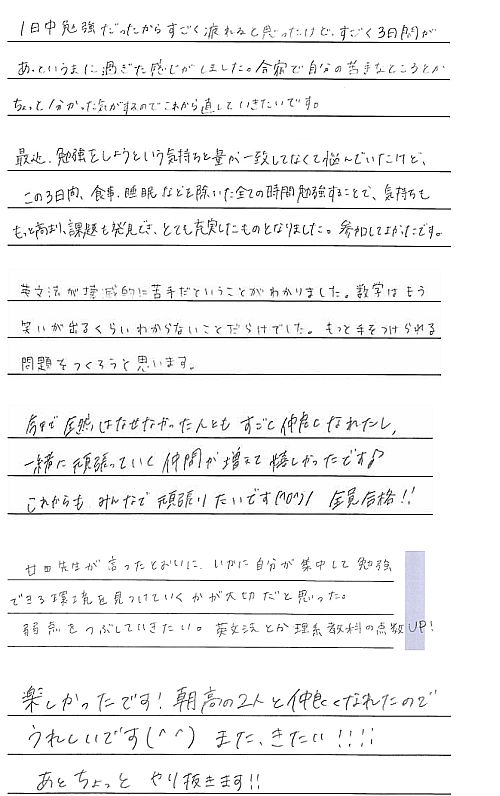 1日中勉強だったからすごく疲れると思ったけど、すごく3日間が
あっというまに過ぎた感じがしました。合宿で自分の苦手なところとか
ちょっと分かった気がするのでこれから直していきたいです。
最近、勉強をしようという気持ちと量が一致してなくて悩んでいたけど、
この3日間、食事、睡眠などを除いた全ての時間勉強することで、気持ちも
もっと高まり、課題も発見でき、とても充実したものとなりました。参加してよかったです。
英文法が壊滅的に苦手だということがわかりました。数学はもう
笑いが出るくらいわからないことだらけでした。もっと手をつけられる
問題をつくろうと思います。
今まで全然はなせなかった人とも すごく仲良くなれたし、
一緒に頑張っていく仲間が増えて嬉しかったです♪
これからも みんなで頑張りたいです(^o^)/ 全員合格!!
廿田先生が言ったとおりに、いかに自分が集中して勉強
できる環境を見つけていくかが大切だと思った。
弱点をつぶしていきたい。英文法とか理系教科の点数UP!
楽しかったです!朝高の2人と仲良くなれたので
うれしいです(^^) また、きたい!!!!
あとちょっと やり抜きます!!